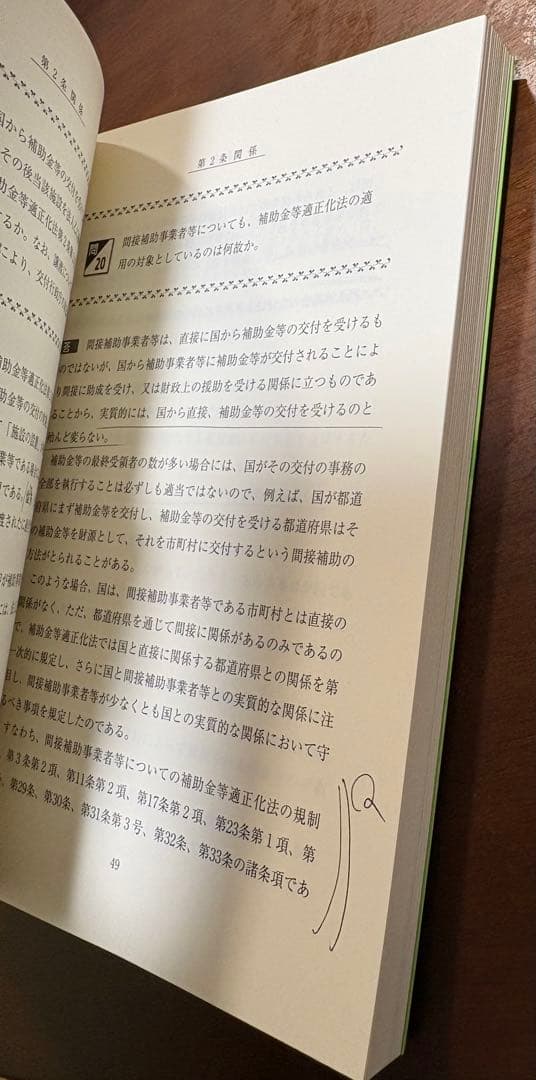 第2条関係
国から補助金等の交付を
その後当該施設を
するか。なお、
により、交付行政
第2条関係
問20
間接補助事業者等についても、補助金等適正化法の適
用の対象としているのは何故か。
答 間接補助事業者等は、直接に国から補助金等の交付を受けるも
のではないが、国から補助事業者等に補助金等が交付されることによ
り間接に助成を受け、又は財政上の援助を受ける関係に立つものであ
ることから、実質的には、国から直接、補助金等の交付を受けるのと
殆んど変らない。
補助金等の最終受領者の数が多い場合には、国がその交付の事務の
全部を執行することは必ずしも適当ではないので、例えば、国が都道
府県にまず補助金等を交付し、補助金等の交付を受ける都道府県はそ
の補助金等を財源として、それを市町村に交付するという間接補助の
方法がとられることがある。
このような場合、国は、間接補助事業者等である市町村とは直接の
関係がなく、ただ、都道府県を通じて間接に関係があるのみであるの
で、補助金等適正化法では国と直接に関係する都道府県との関係を第
一次的に規定し、さらに国と間接補助事業者等との実質的な関係に注
目し、間接補助事業者等が少なくとも国との実質的な関係において守
るべき事項を規定したのである。
すなわち、間接補助事業者等についての補助金等適正化法の規制
、第3条第2項、第11条第2項、第17条第2項、第23条第1項、第
、第29条、第30条、第31条第3号、第32条、第33条の諸条項であ
49